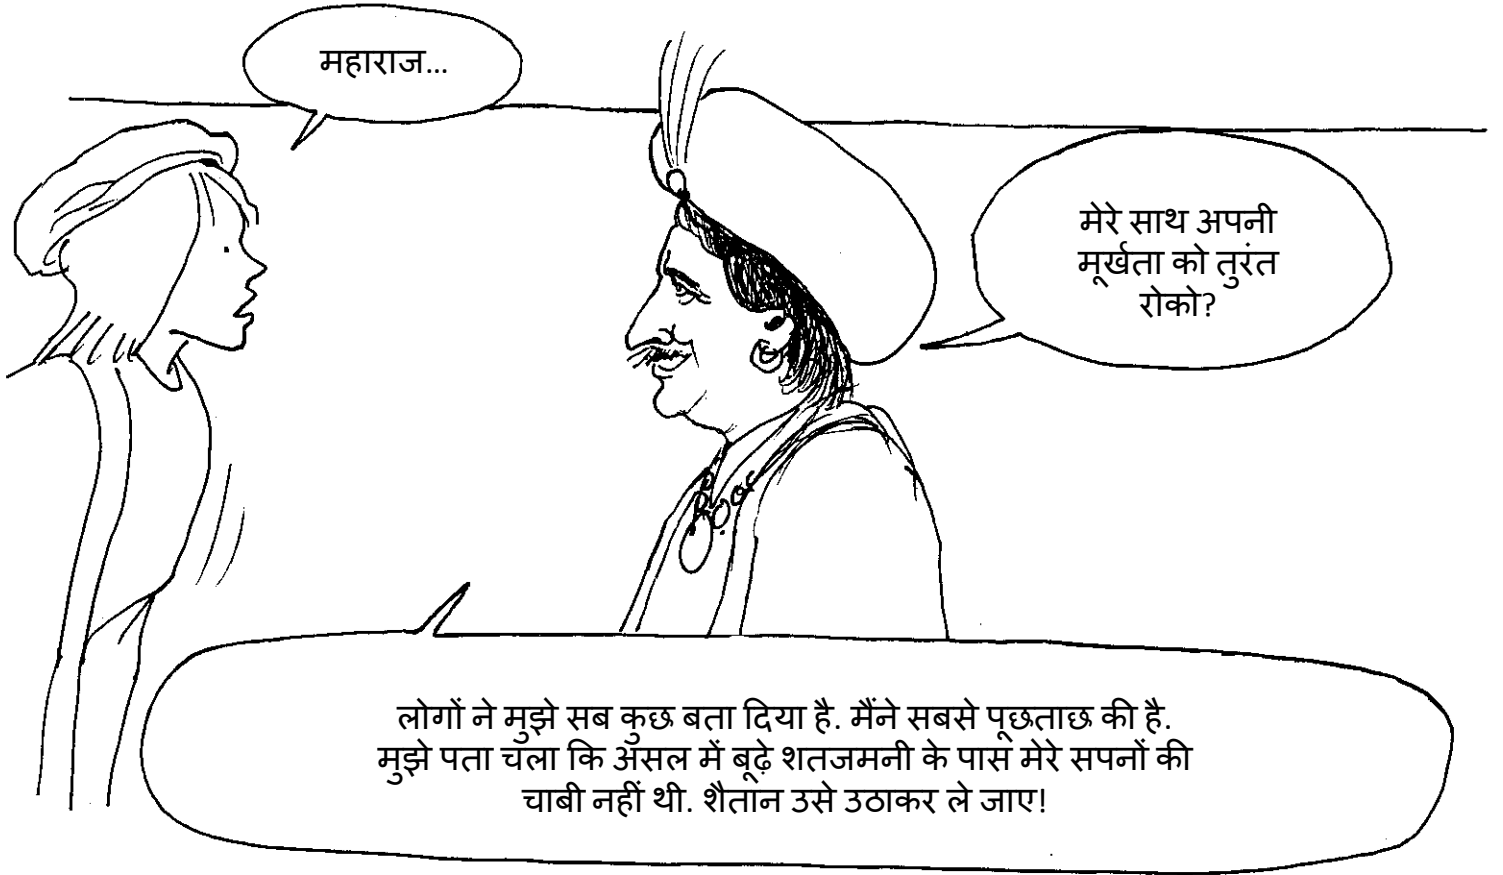 महाराज...
मेरे साथ अपनी
मूर्खता को तुरंत
रोको?
लोगों ने मुझे सब कुछ बता दिया है. मैंने सबसे पूछताछ की है.
मुझे पता चला कि असल में बूढ़े शतजमनी के पास मेरे सपनों की
चाबी नहीं थी. शैतान उसे उठाकर ले जाए!